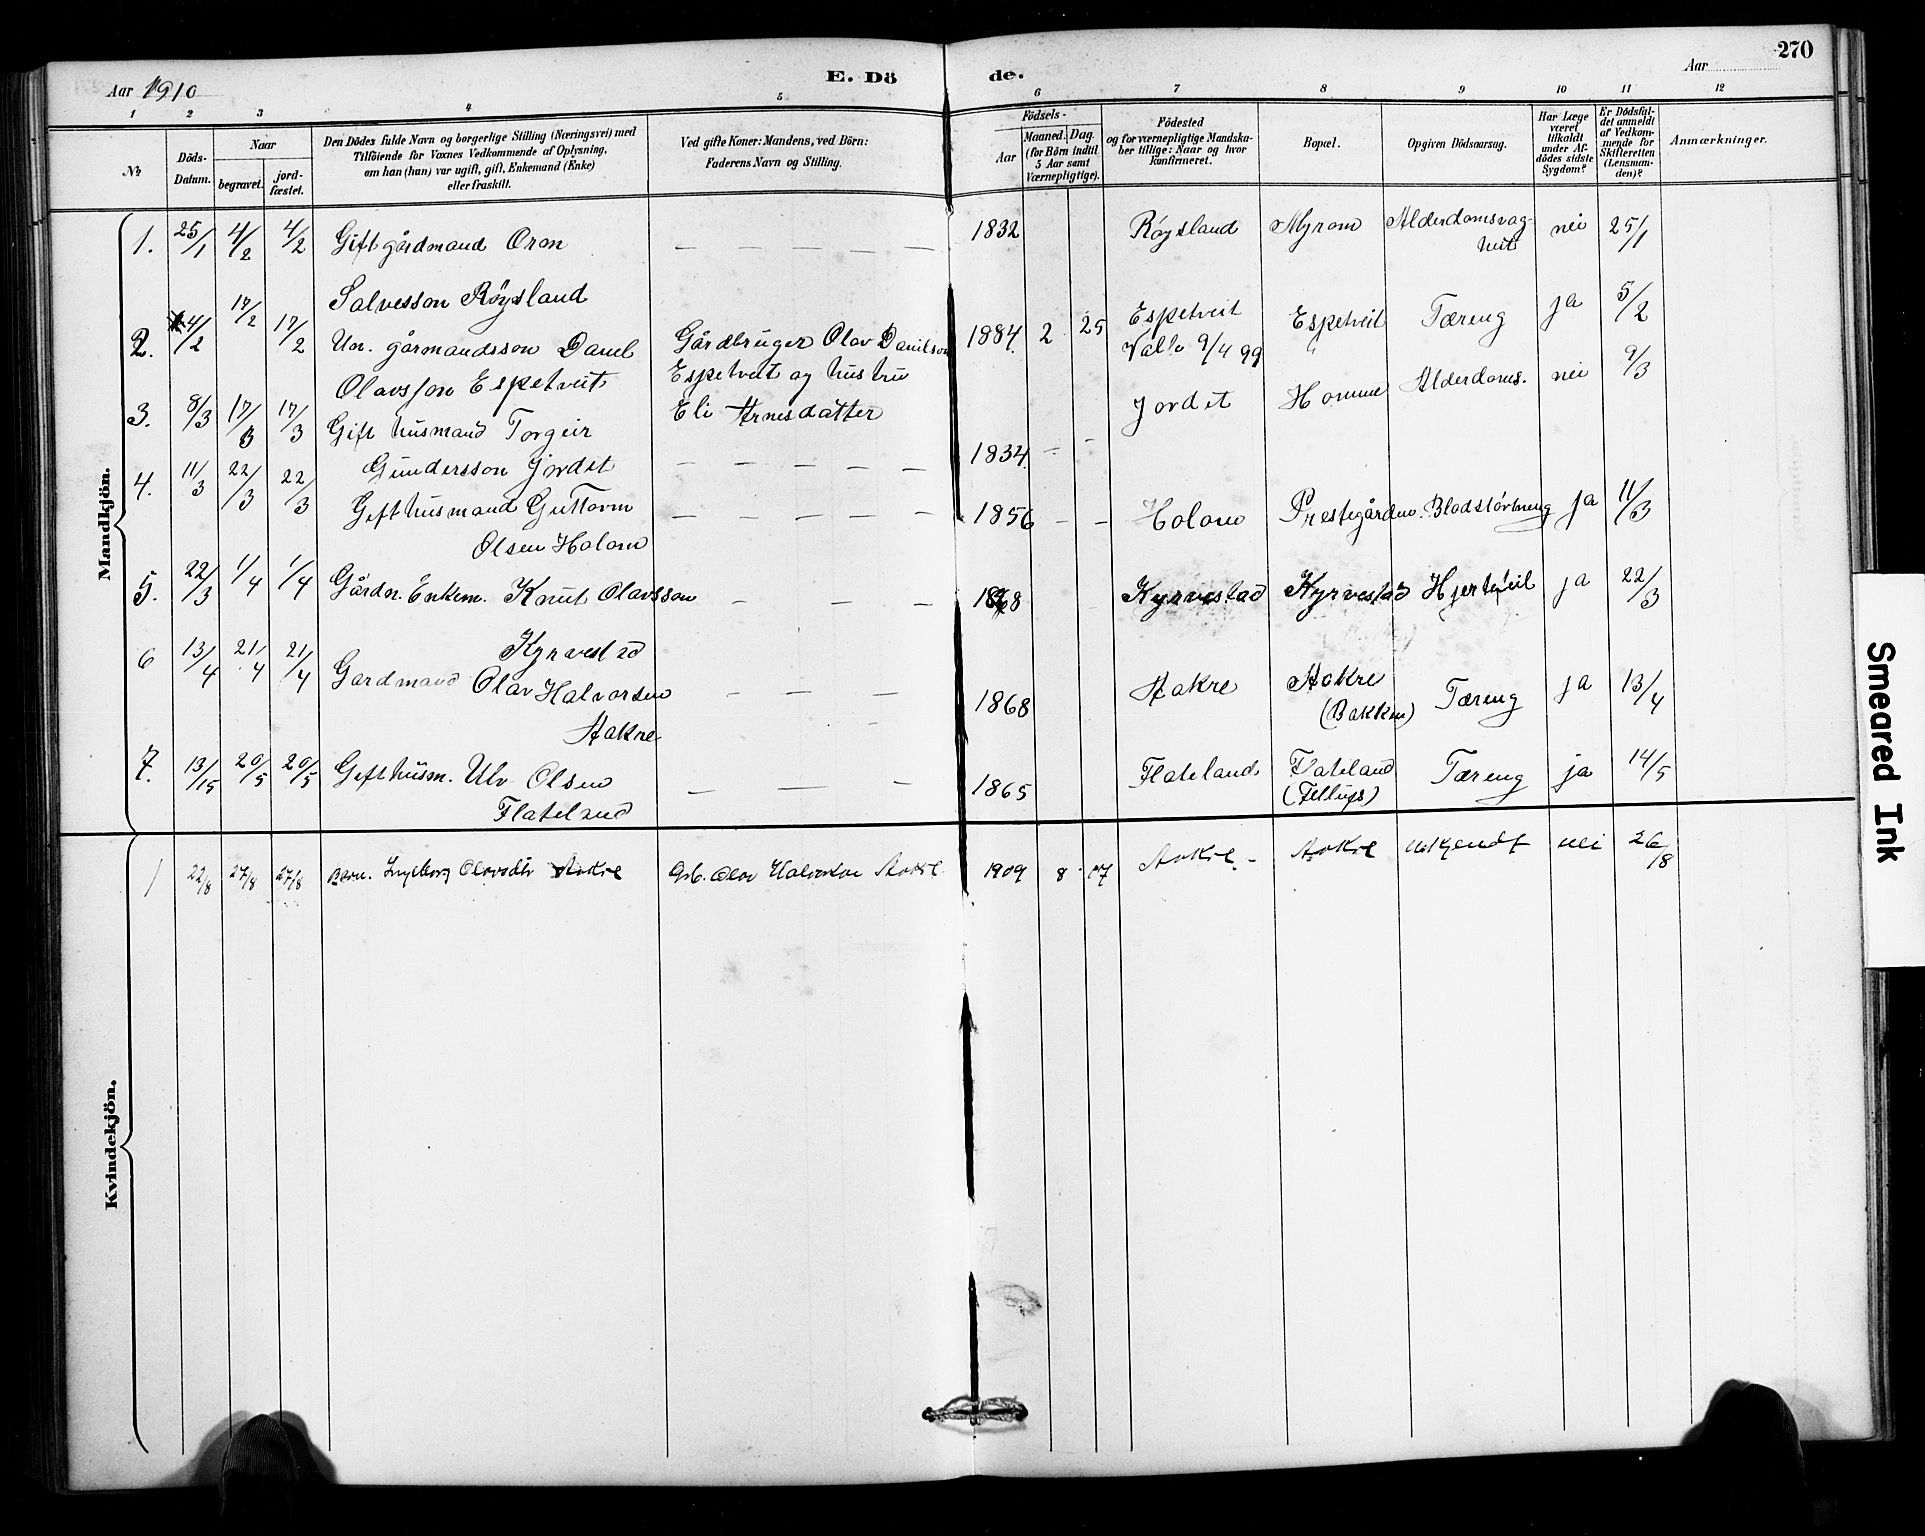 270
Aar 1910
E. Dö de.
Aar
1 2 3 4 5 6 7 8 9 10 11 12
No
Döds-Datum.
Naar
begravet.
jord-fæstet.
Den Dödes fulde Navn og borgerlige Stilling (Næringsvei) med
Tilföiende for Voxnes Vedkommende af Oplysning,
om han (hun) var ugift, gift, Enkemand (Enke)
eller fraskilt.
Ved gifte Koner: Mandens, ved Börn:
Faderens Navn og Stilling.
Födsels-
Aar
Maaned. Dag.
(for Börn indtil
5 Aar samt
Værnepligtige).
Födested
og for værnepligtige Mandska-
ber tillige: Naar og hvor
Konfirmeret.
Bopæl.
Opgiven Dödsaarsag.
Har Læge
været
tilkaldt
under Af-
dödes sidste
Sygdom?
Er Dödsfal-
det anmeldt
af Vedkom-
mende for
Skifteretten
(Lensman-
den)?
Anmærkninger.
Mandkjön.
1. 25/1 4/2 4/2 Gift gårdmand Oron — — — — — 1832 Röysland Myrom Alderdomsvag- nei 25/1
heit
Salvesson Röysland
2. 4/2 17/2 17/2 Un. gårmandsson Daniel Gårdbruger Olav Danilson 1884. 2 25 Espetveit Espetveit Tæreng ja 5/2
Valle 9/4 99
Olavsson Espetveit Espetveit og hustru
Eli Arnesdatter
3. 8/3 17/3 17/3 Gift husmand Torgeir Jordet Homme Alderdoms. nei 9/3
Gundersson Jordet — — — — — 1834. - -
4. 11/3 22/3 22/3 Gift husmand Guttorm — — — — — 1856 - - Holom Prestegården. Blodstörtning ja 11/3
Olsen Holom
5. 22/3 1/4 1/4 Gårdm. Enkem. Knut Olavsson — — — 1868 Kyrvestad Kyrvestad Hjertefeil ja 22/3
Kyrvestad
6 13/4 21/4 21/4 Gardmand Olav Halvorsen — — — 1868 Aakre Aakre Tæreng ja 13/4
(Bakken)
Aakre
7. 13/15 20/5 20/5 Gift husm. Ulv Olsen — — — 1865 Flateland Flateland Tæreng ja 14/5
Flateland
Kvindekjön.
1 22/8 27/8 27/8 Barn. Ingeborg Olavsdtr Aakre Grb. Olav Halvorson Aakre 1909 8 17 Aakre - Aakre Ukjendt nei 26/8
Smeared Ink